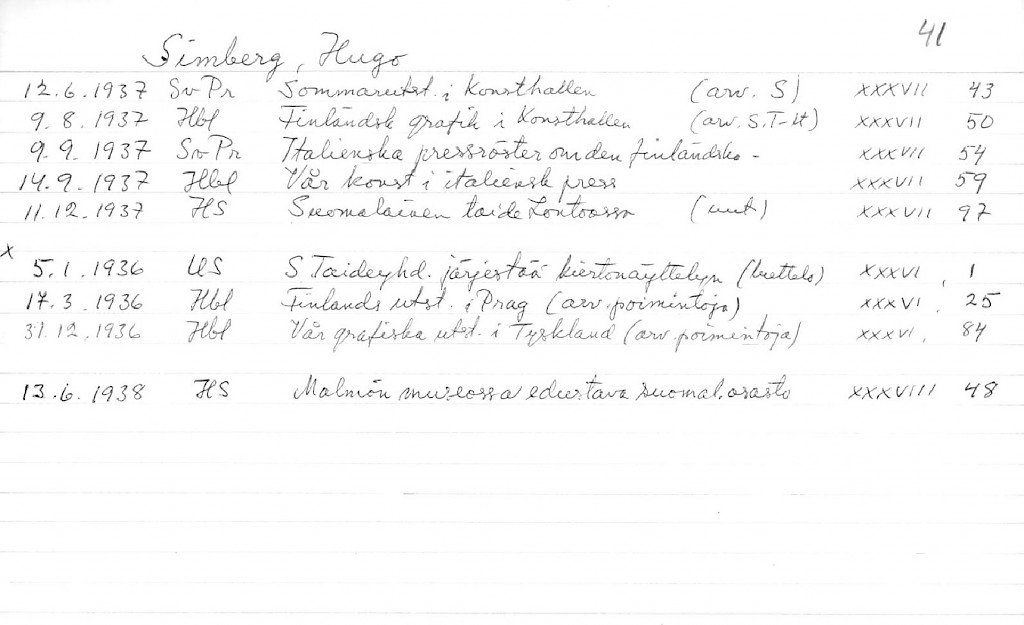 41
Simberg, Hugo
12.6.1937 Sv Pr Sommarutst. i Konsthallen (arv. S) XXXVII 43
9.8.1937 Hbl Finländsk grafik i Konsthallen (arv. S.T-lt) XXXVII 50
9.9.1937 Sv Pr Italienska pressröster om den finländska - XXXVII 54
14.9.1937 Hbl Vår konst i italiensk press XXXVII 59
11.12.1937 HS Suomalainen taide Lontoossa (uut.) XXXVII 97
x
5.1.1936 US S Taideyhd. järjestää kiertonäyttelyn (luettelo) XXXVI, 1
17.3.1936 Hbl Finlands utst. i Prag (arv. poimintoja) XXXVI. 25
31.12.1936 Hbl Vår grafiska utst. i Tyskland (arv. poimintoja) XXXVI, 84
13.6.1938 HS Malmön museossa edustava suomal. osasto XXXVIII 48